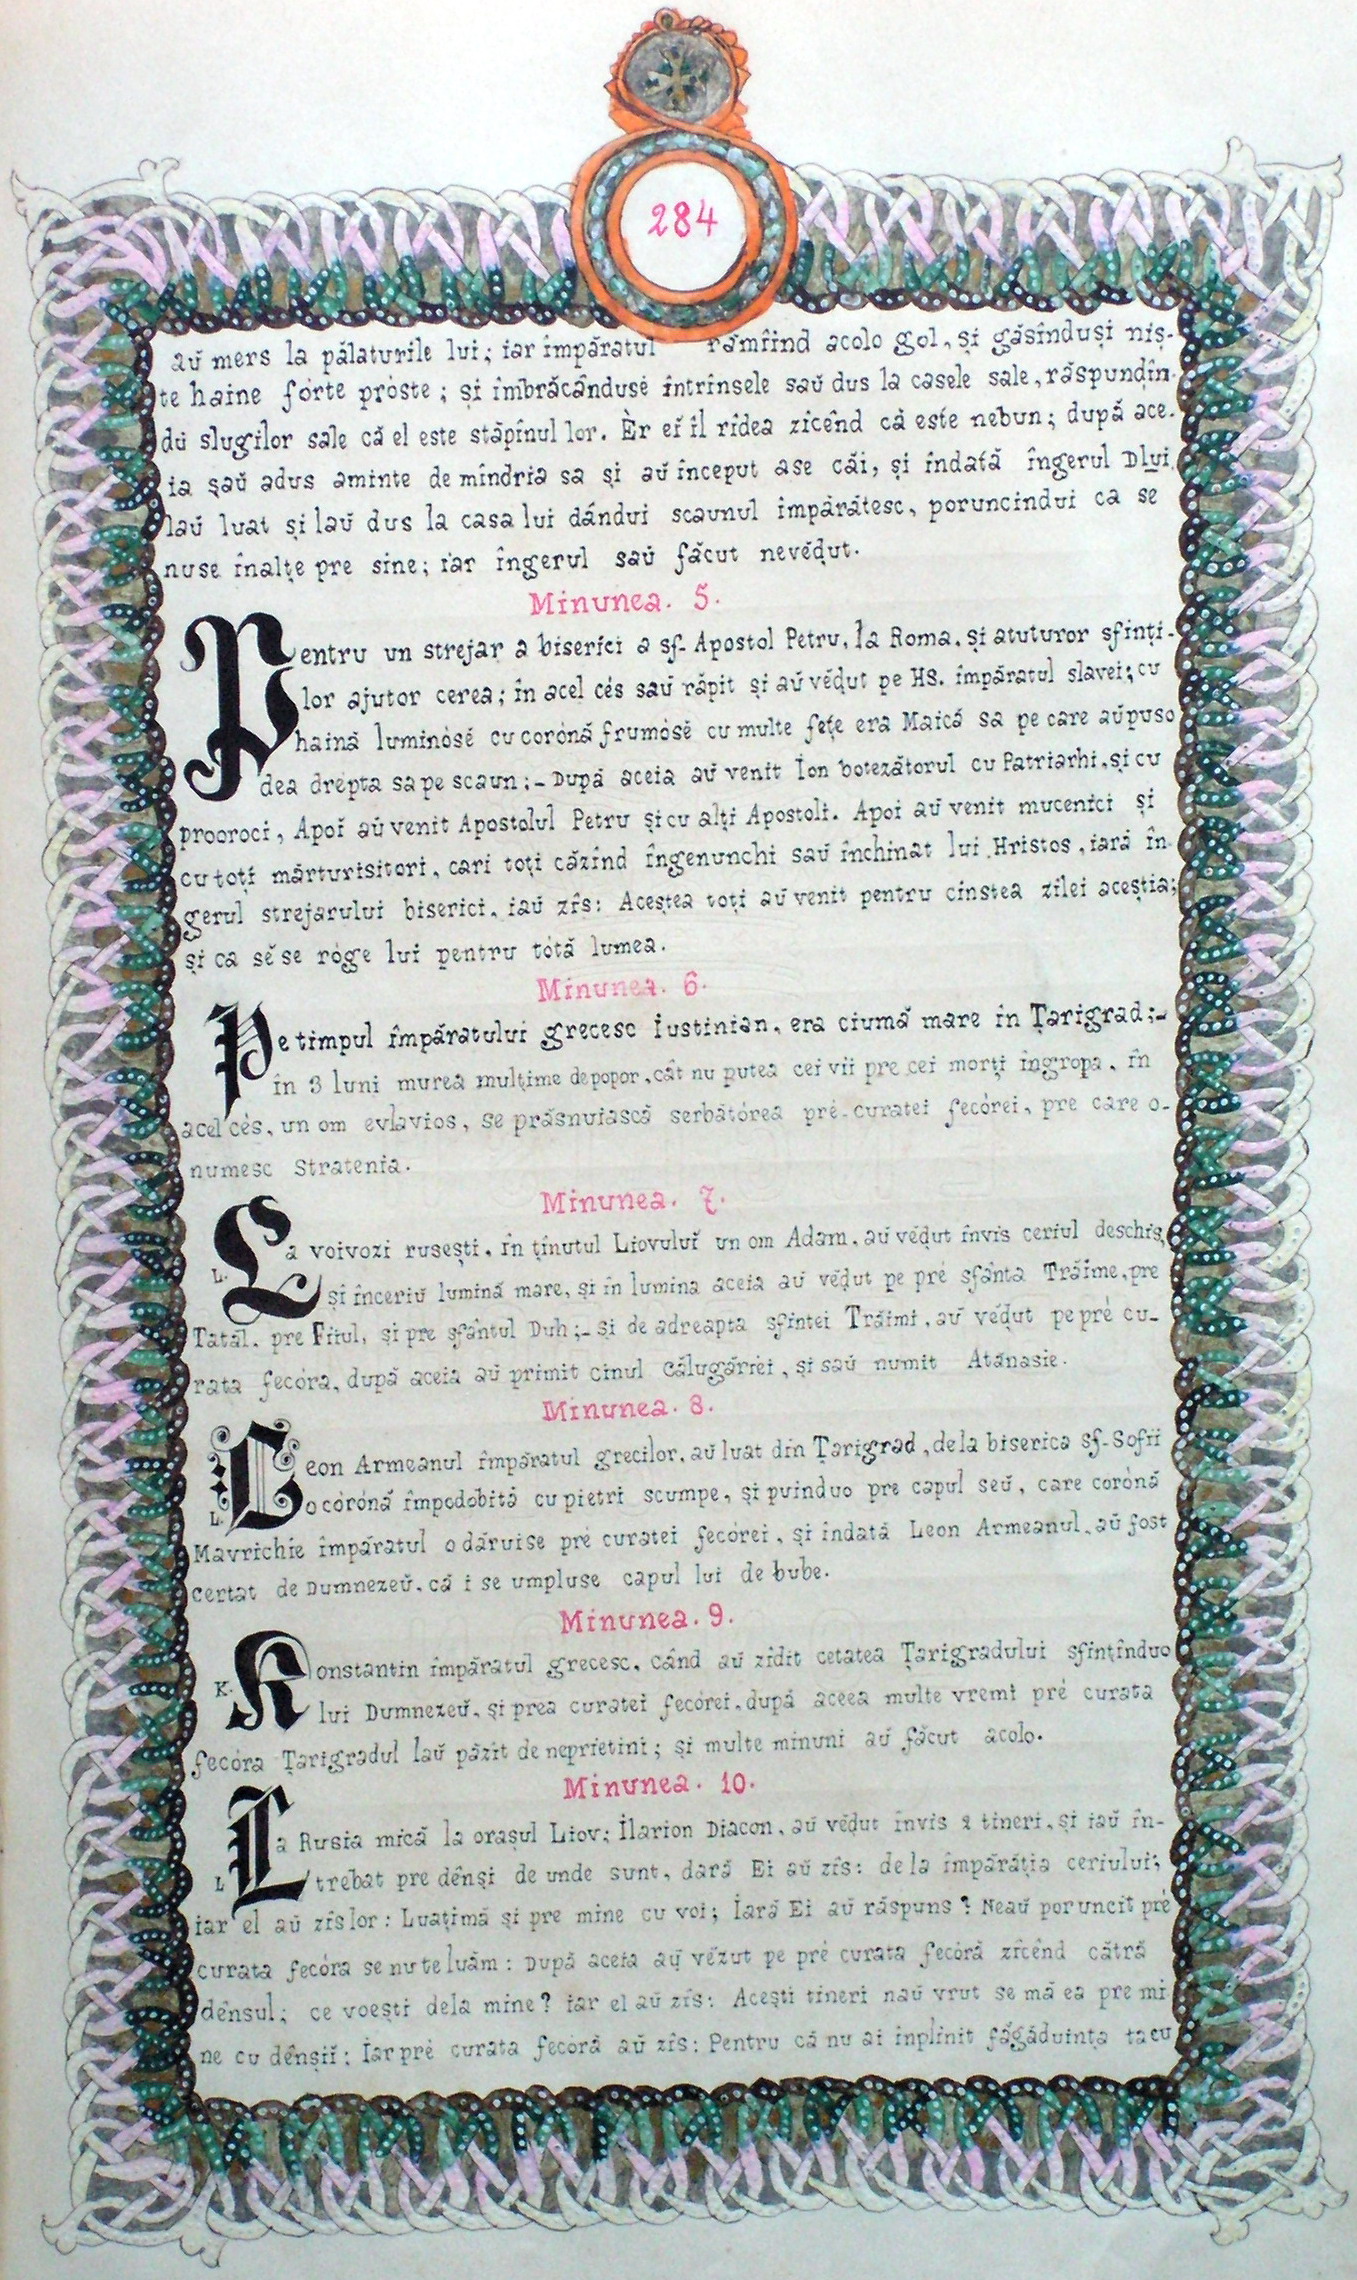 284
aŭ mers la pălaturile lui; iar împăratul rămîind acolo gol, și găsîndușì niș-
te haine fórte próste; și îmbrăcânduse întrînsele saŭ dus la casele sale, răspundîn-
du slugilor sale că el este stăpînul lor. Èr eĭ îl rîdea zicênd că este nebun; după ace-
ia șaŭ adus aminte de mîndria sa și aŭ început ase căi, și îndată îngerul Dlui
laŭ luat și laŭ dus la casa lui dându​i scaunul împărătesc, poruncindui ca se
nuse înalțe pre sine; iar îngerul saŭ făcut nevĕḑut.
Minunea. 5.
Pentru un strejar a biserici a sf. Apostol Petru, la Roma, și atuturor sfinți-
lor ajutor cerea; în acel cés saŭ răpit și aŭ vĕḑut pe HS. împăratul slavei; cu
haină luminósĕ cu corónă frumósĕ cu multe fețe era Maică sa pe care aŭ puso
dea drépta sa pe scaun;- După aceia aŭ venit Ion botezătorul cu Patriarhi, și cu
prooroci, Apoĭ aŭ venit Apostolul Petru și cu alți Apostoli. Apoi aŭ venit mucenici și
cu toți mărturisitori, cari toți căzînd îngenunchi saŭ închinat lui Hristos, iară în-
gerul strejarului biserici, iaŭ zîs: Aceștea toți aŭ venit pentru cinstea zilei aceștia;
și ca sĕ se róge lui pentru tótă lumea.
Minunea. 6.
Pe timpul împăratului grecesc Iustinian, era ciumă mare în Țarigrad:-
în 3 luni murea mulțime de popor, cât nu putea cei vii pre cei morți îngropa, în
acel cés, un om evlavios, se prăsnuiască serbătórea pré-curatei fecórei, pre care o-
numesc Stratenia.
Minunea. 7.
La voivozi rusești, în ținutul Liovuluĭ un om Adam, aŭ vĕḑut învis ceriul deschis,
L.
și în ceriŭ lumină mare, și în lumina aceia aŭ vĕḑut pe pré sfânta Trăime, pre
Tatăl, pre Fiiul, și pre sfântul Duh;- și de adreapta sfintei Trăimi, aŭ vĕḑut pe pré cu-
rata fecóra, după aceia aŭ primit cinul Călugăriei, și saŭ numit Atanasie.
Minunea. 8.
Leon Armeanul împăratul grecilor, aŭ luat din Țarigrad, dela biserica sf. Sofii
L.
o corónă împodobită cu pietri scumpe, și puinduo pre capul seŭ, care corónă
Mavrichie împăratul o dăruise pré curatei fecórei, și îndată Leon Armeanul, aŭ fost
certat de Dumnezeŭ, că i se umpluse capul lui de bube.
Minunea. 9.
Konstantin împăratul grecesc, când aŭ zidit cetatea Țarigradului sfințînduo
K.
lui Dumnezeŭ, și prea curatei fecórei, după aceea multe vremi pré curata
fecóra Țarigradul laŭ păzit de neprietini; și multe minuni aŭ făcut acolo.
Minunea. 10.
La Rusia mică la orașul Liov; Ilarion Diacon, aŭ vĕḑut învis 2 tineri, și iaŭ în-
L
trebat pre dênși de unde sunt, dară Ei aŭ zîs: dela împărăția ceriului;
iar el aŭ zîs lor: Luațimă și pre mine cu voi; Iară Ei aŭ răspuns? Neaŭ poruncit pré
curata fecóra se nu te luăm: După aceia aŭ vĕzut pe pré curata fecóră zîcênd cătră
dênsul; ce voești dela mine? iar el aŭ zîs: Acești tineri naŭ vrut se mă ea pre mi
ne cu dênșii: Iar pré curata fecóră aŭ zîs: Pentru că nu ai înplinit făgăduința ta cu